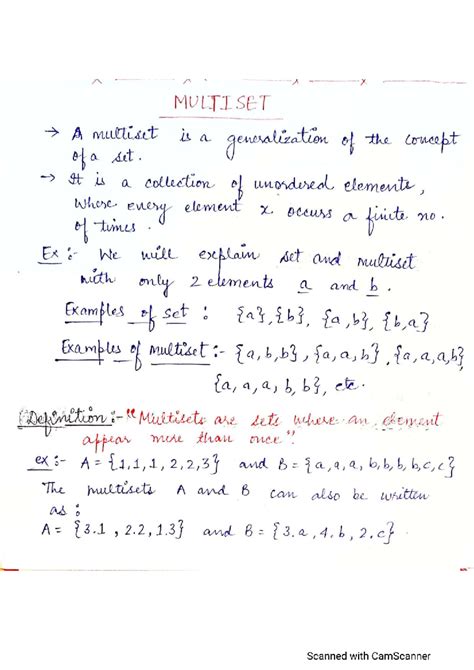 MULTISET
→ A multiset is a generalization of the concept
of a set.
→ It is a collection of unordered elements,
where every element x occurs a finite no.
of times.
Ex :- We will explain set and multiset
with only 2 elements a and b.
Examples of set : {a}, {b}, {a,b}, {b,a}
Examples of multiset :- {a,b,b}, {a,a,b}, {a,a,a,b}
{a, a, a, b, b}, etc.
Definition :- "Multisets are sets where an element
appear more than once".
ex :- A = {1,1,1,2,2,3} and B = {a,a,a,b,b,b,b,c,c}
The multisets A and B can also be written
as :
A = {3.1, 2.2, 1.3} and B = {3.a, 4.b, 2.c}
Scanned with CamScanner